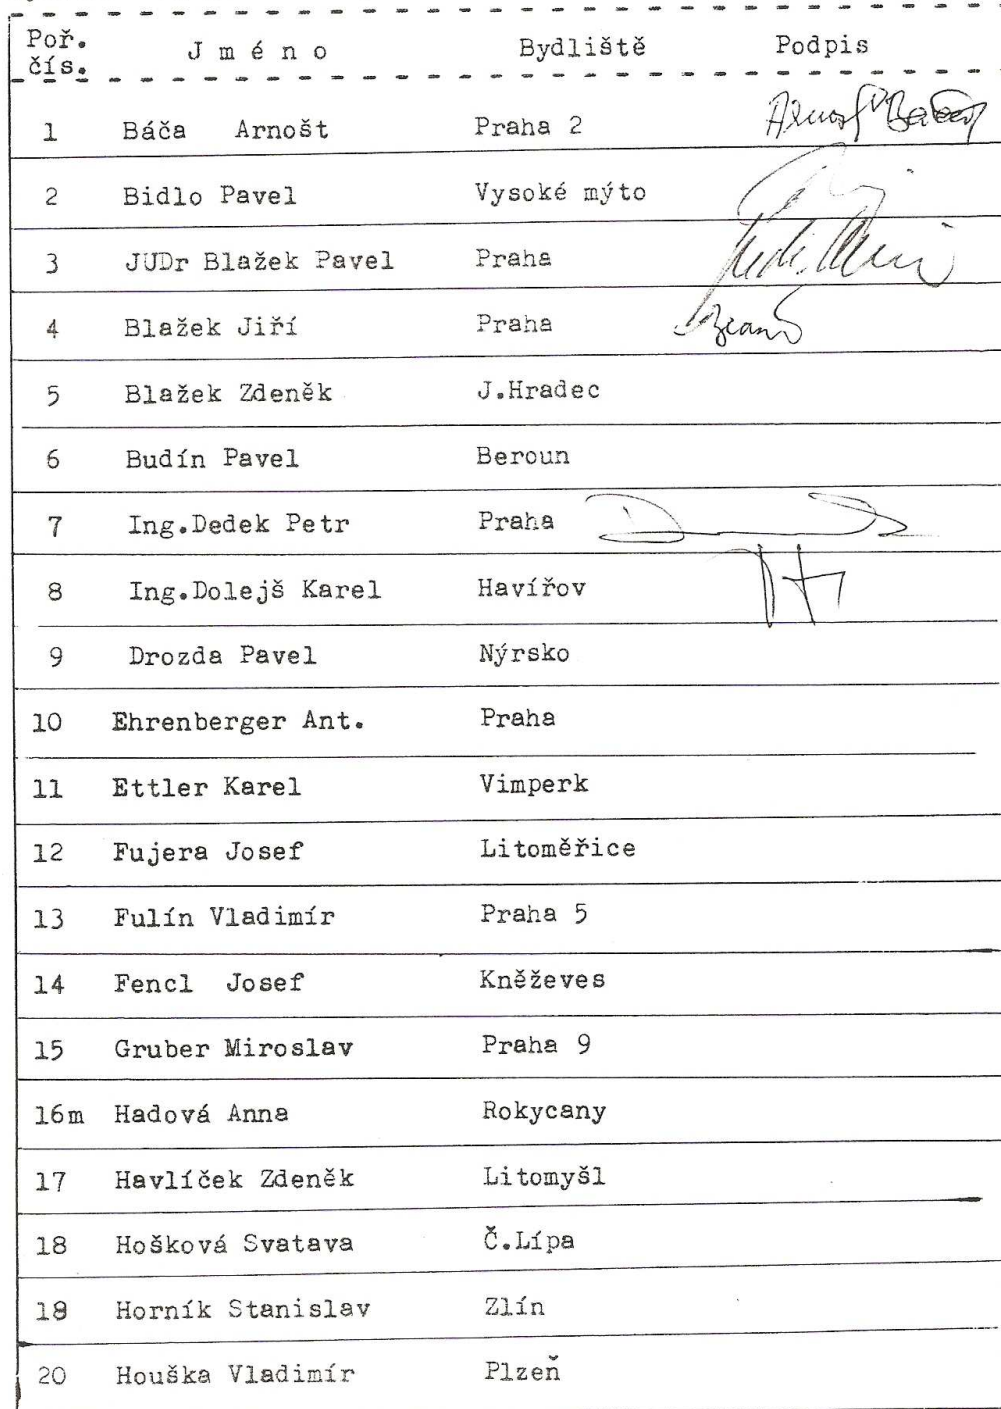 Poř. čís. J m é n o Bydliště Podpis
1 Báča Arnošt Praha 2 Arnošt Báča
2 Bidlo Pavel Vysoké mýto
3 JUDr Blažek Pavel Praha
4 Blažek Jiří Praha
5 Blažek Zdeněk J.Hradec
6 Budín Pavel Beroun
7 Ing.Dedek Petr Praha
8 Ing.Dolejš Karel Havířov
9 Drozda Pavel Nýrsko
10 Ehrenberger Ant. Praha
11 Ettler Karel Vimperk
12 Fujera Josef Litoměřice
13 Fulín Vladimír Praha 5
14 Fencl Josef Kněževes
15 Gruber Miroslav Praha 9
16m Hadová Anna Rokycany
17 Havlíček Zdeněk Litomyšl
18 Hošková Svatava Č.Lípa
19 Horník Stanislav Zlín
20 Houška Vladimír Plzeň